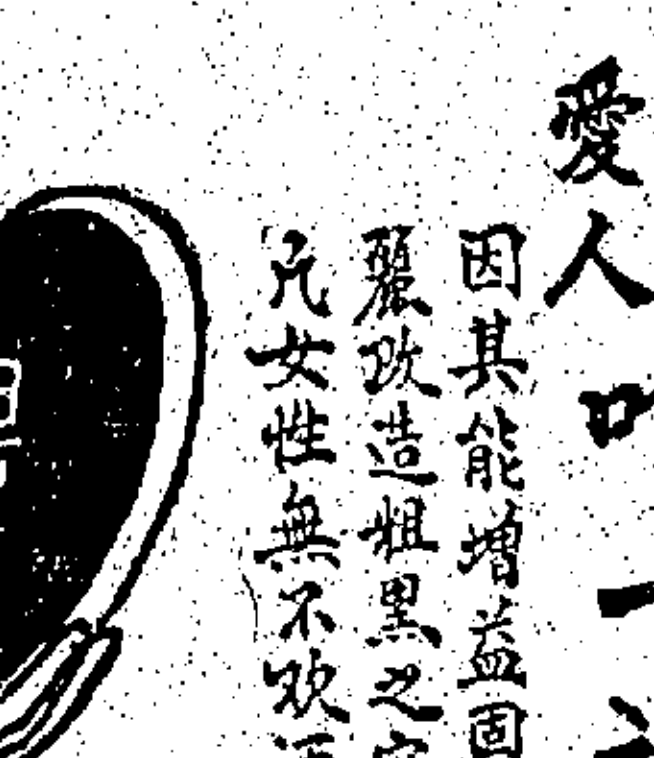 愛人
因其能增益固
麗改造粗黑之
凡女性無不歡